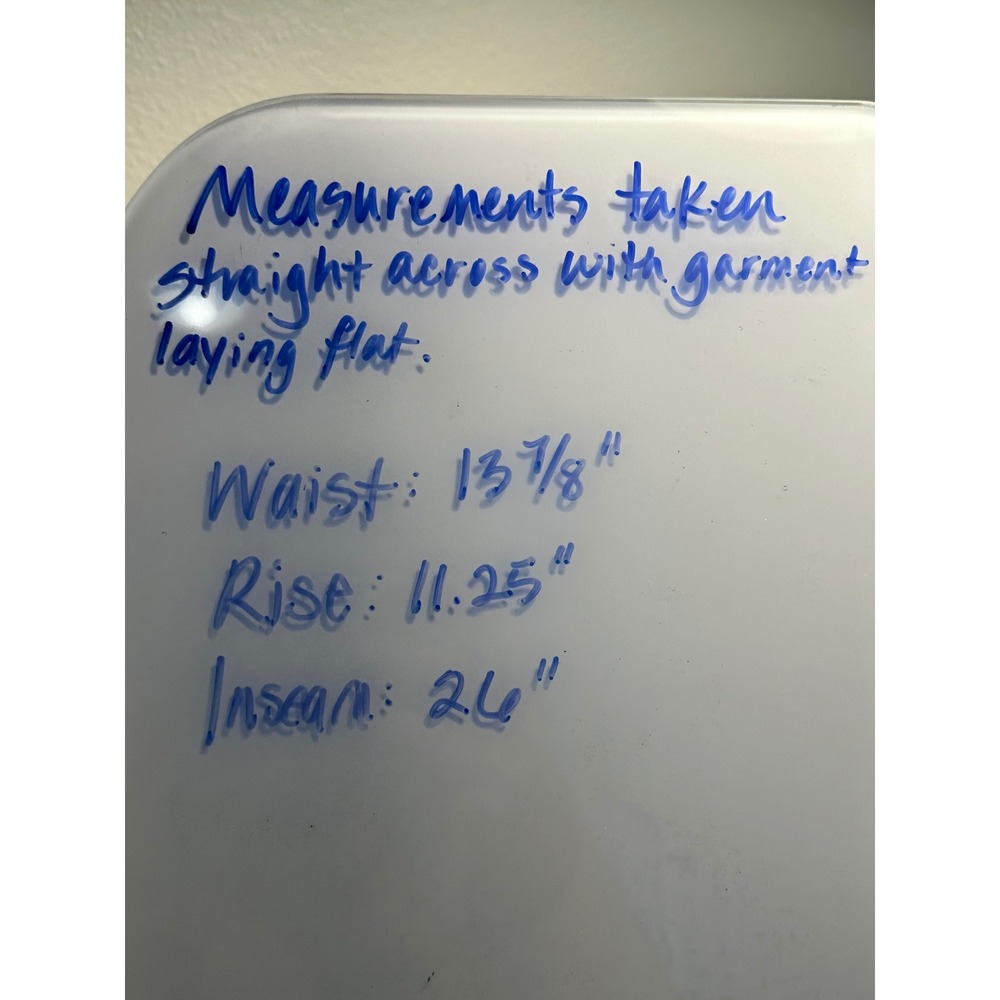 Measurements taken
straight across with garment
laying flat.
Waist: 13 7/8"
Rise: 11.25"
Inseam: 26"